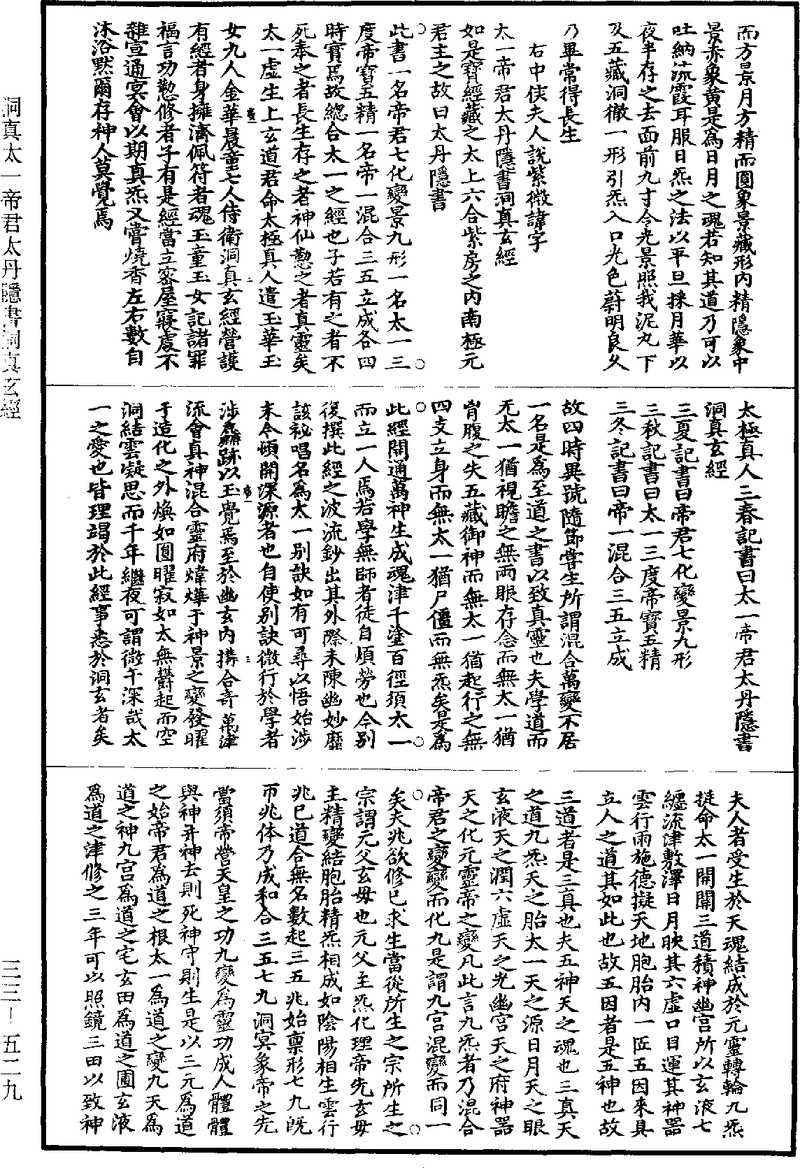 而方景月方精而圓象景藏形內精隱象中
景赤象黄是為日月之魂若知其道乃可以
吐納流霞耳服日炁之法以平旦採月華以
夜半存之去面前九寸令光景照我泥丸下
及五藏洞徹一形引炁入口光色蔚明良久
乃畢常得長生
右中使夫人說紫微諱字
太一帝君太丹隱書洞真玄經
如是寶經藏之太上六合紫房之内南極元
君主之故曰太丹隱書
此書一名帝君七化變景九形一名太一三
度帝寶五精一名帝一混合三五立成各四
時寶焉故總合太一之經也子若有之者不
死奉之者長生存之者神仙懃之者真靈矣
太一虛生上玄道君命太極真人遣玉華玉
女九人金華晨童七人侍衛洞真玄經營護
有經者身擁濟佩符者魂玉童玉女記諸罪
福言功懃修者子有是經當立密屋寢處不
雜宣通冥會以期真炁又當燒香左右數自
沐浴默爾存神人莫覺焉
太極真人三春記書曰太一帝君太丹隱書
洞真玄經
三夏記書曰帝君七化變景九形
三秋記書曰太一三度帝寶五精
三冬記書曰帝一混合三五立成
故四時異號隨節尊生所謂混合萬變不居
一名是為至道之書以致真靈也夫學道而
无太一猶視瞻之無兩眼存念而無太一猶
胷腹之失五藏御神而無太一猶起行之無
四支立身而無太一猶尸僵而無炁矣是為
此經開通萬神生成魂津千塗百徑須太一
而立一人焉若學無師者徒自煩勞也今別
復撰此經之波流鈔出其外際未陳幽妙靡
該祕唱名為太一別訣如有可尋以悟始涉
末令頓開深源者也自使別訣微行於學者
涉麤跡以玉覺焉至於幽玄內搆合奇萬津
流會真神混合靈府煒燁于神景之變發曜
于造化之外煥如圓曜寂如太無欝起而空
洞結雲凝思而千年繼夜可謂微乎深哉太
一之愛也皆理竭於此經事悉於洞玄者矣
夫人者受生於天魂結成於元靈轉輪九炁
挺命太一開關三道積神幽宮所以玄液七
纏流津敷澤日月映其六虛口目運其神器
雲行雨施德擬天地胞胎內一匝五因來具
立人之道其如此也故五因者是五神也故
三道者是三真也夫五神天之魂也三真天
之道九炁天之胎太一天之源日月天之眼
玄液天之潤六虛天之光幽宮天之府神器
天之化元靈帝之變凡此言九炁者乃混合
帝君之變變而化九是謂九宮混變而同一
矣夫兆欲修已求生當從所生之宗所生之
宗謂元父玄母也元父主炁化理帝先玄母
主精變結胞胎精炁相成如陰陽相生雲行
兆已道合無名數起三五兆始禀形七九旣
帀兆体乃成和合三五七九洞冥象帝之先
當須帝營天皇之功九變為靈功成人體體
與神并神去則死神守則生是以三元為道
之始帝君為道之根太一為道之變九天為
道之神九宮為道之宅玄田為道之圃玄液
為道之津修之三年可以照鏡三田以致神
洞真太一帝君太丹隱書洞真玄經
三三—五二九